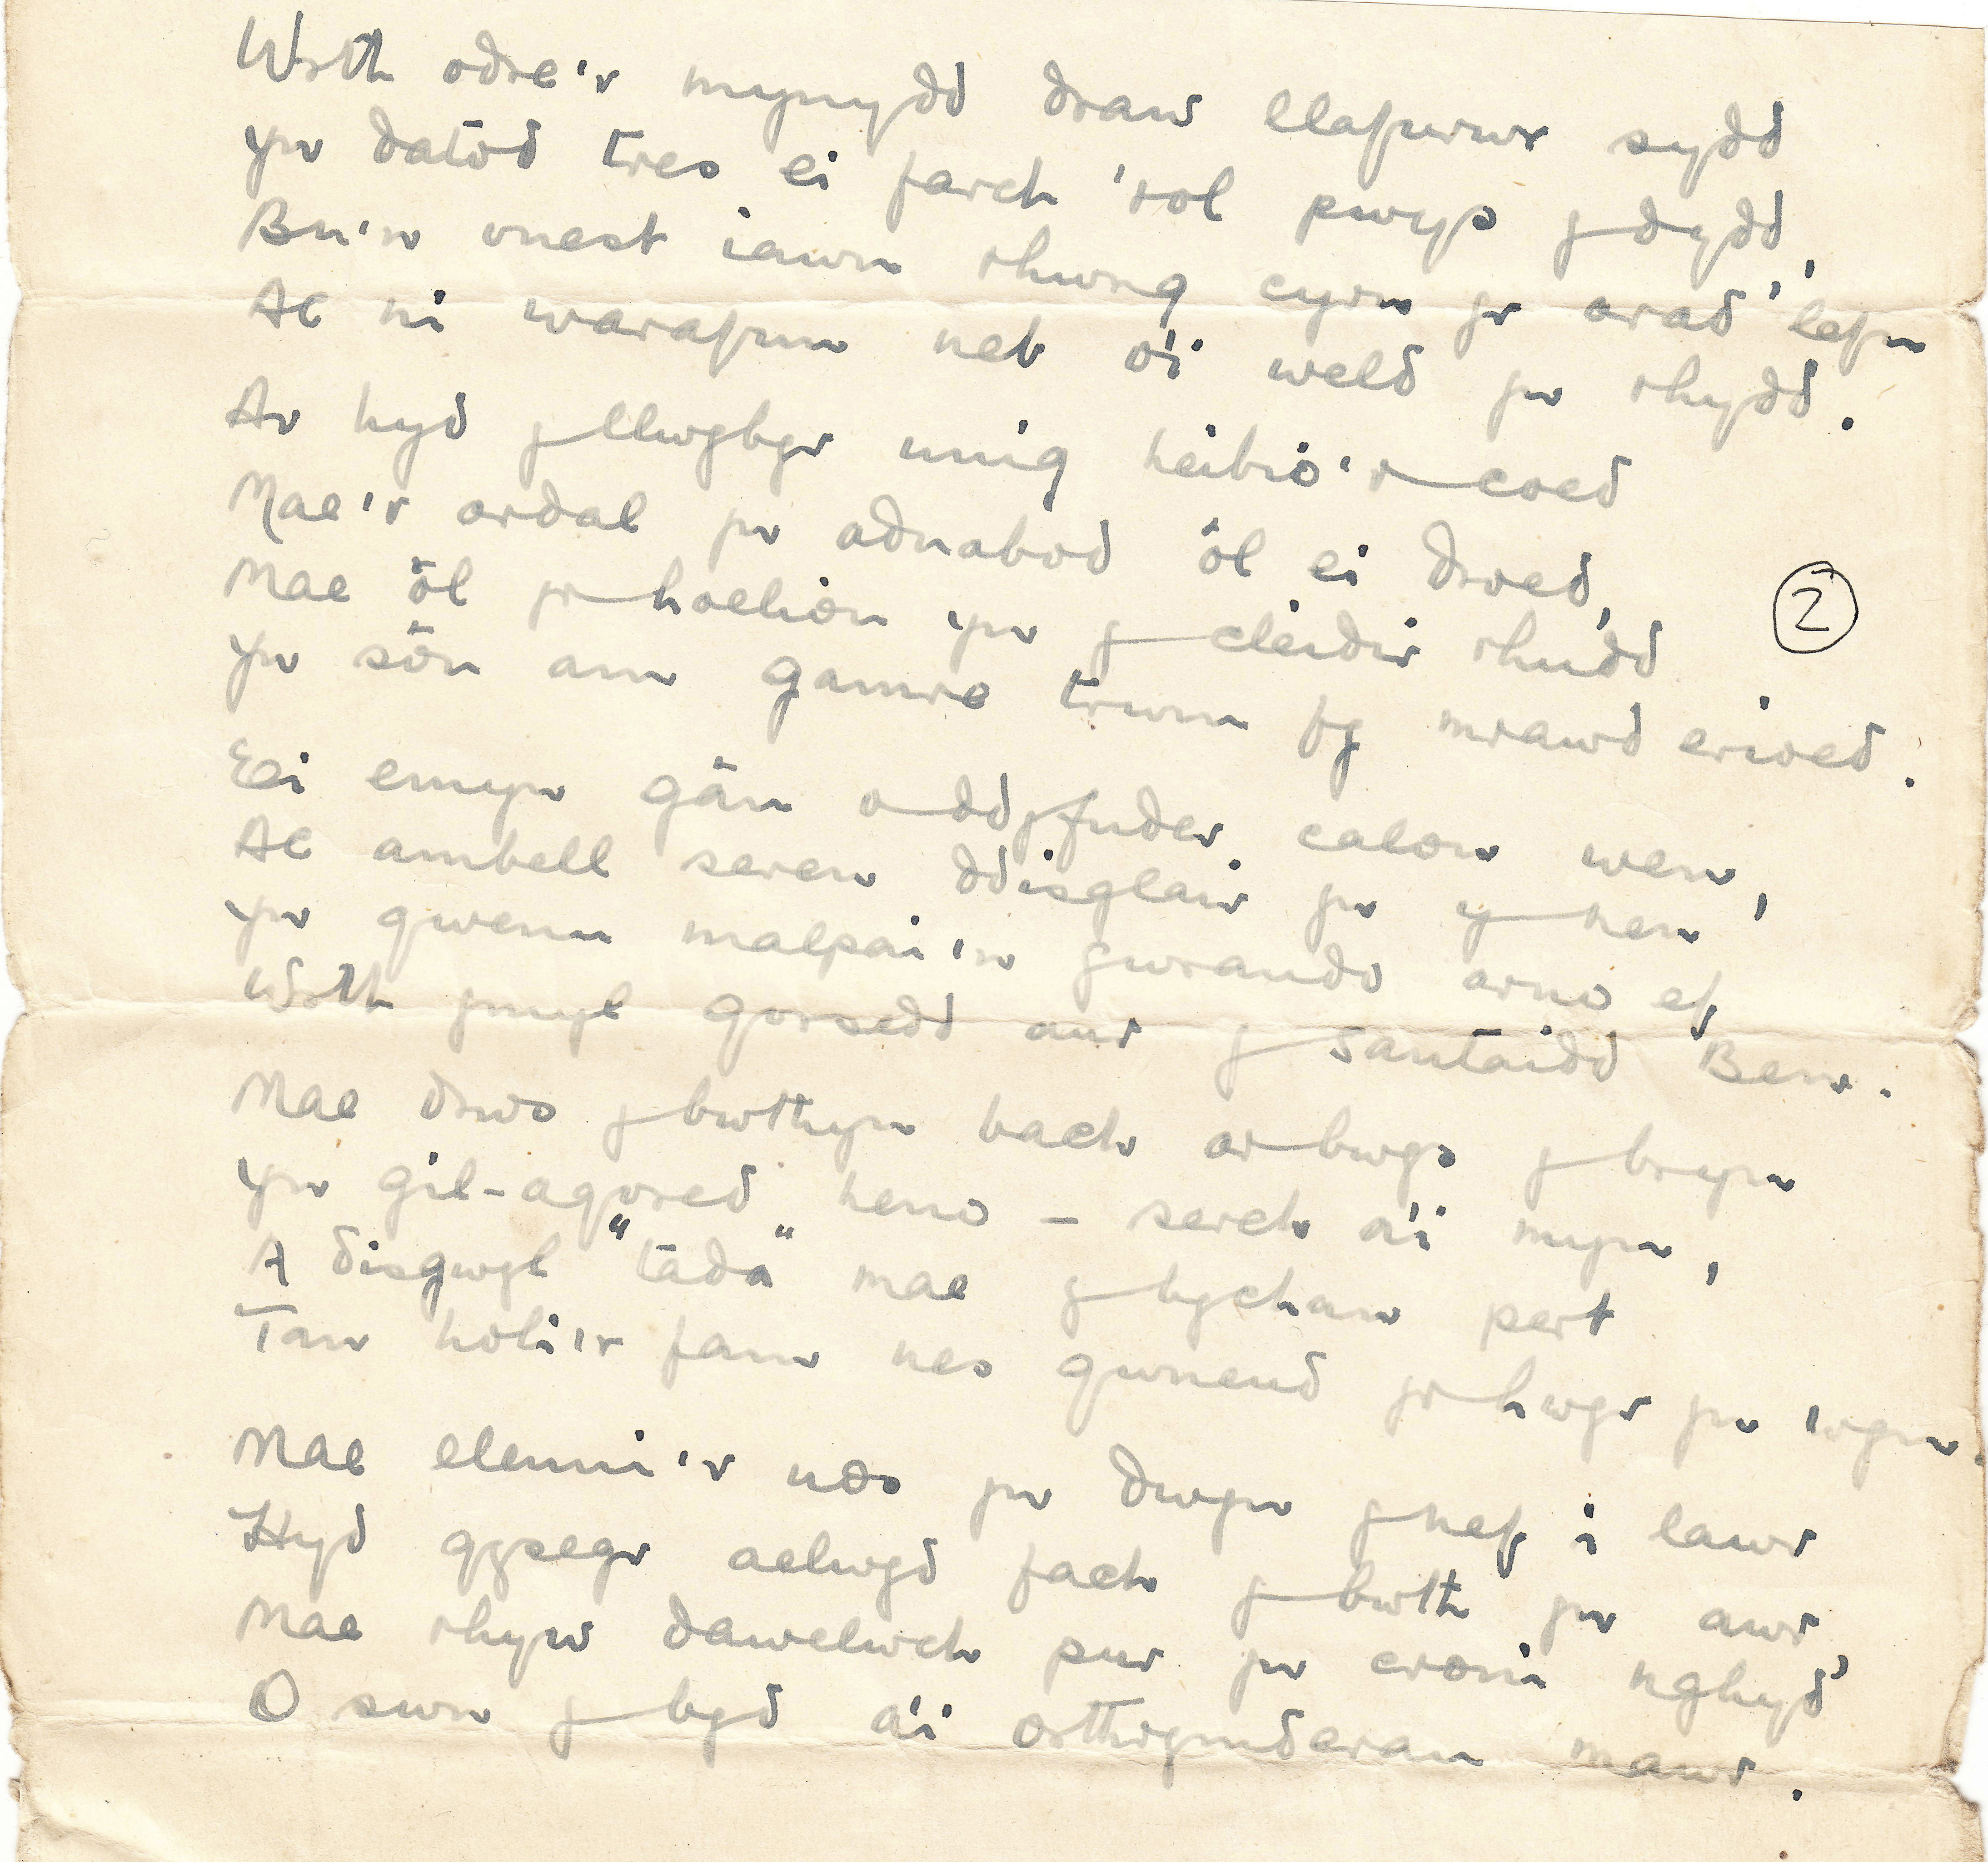 Wrth odre'r mynydd draw llafurwr sydd
Yn datod tres ei farch 'rol pwys y dydd,
Bu'n onest iawn rhwng cyrn yr arad' lefn
Ac ni warafun neb o'i weld yn rhydd.
Ar hyd y llwybyr unig heibio'r coed
Mae'r ardal yn adnabod ôl ei droed,
Mae ôl yr hoelion yn y cleidir rhudd
Yn sôn am gamre trwm fy mrawd erioed.
2
Ei emyn gân o ddyfnder calon wen,
Ac ambell seren ddisglair yn y nen
Yn gwenu malpai'n gwrando arno ef
Wrth ymyl gorsedd aur y Santaidd Ben.
Mae drws y bwthyn bach ar bwys y bryn
Yn gil-agored heno - serch a'i myn,
A disgwyl "tada" mae y bychan pert
Tan holi'r fam nes gwneud yr hwyr yn 'wyn.
Mae elenni'r nos yn dwyn y nef i lawr
Hyd gysegr aelwyd fach y bwth yn awr,
Mae rhyw dawelwch pur yn croni nghyd
O swn y byd a'i orthrymderau mawr.